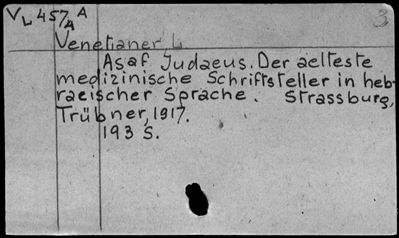 VL 457/A A
3
Venetianer, L.
Asaf Judaeus. Der aelteste
medizinische Schriftsteller in heb-
raeischer Sprache. Strassburg,
Trübner, 1917.
193 S.